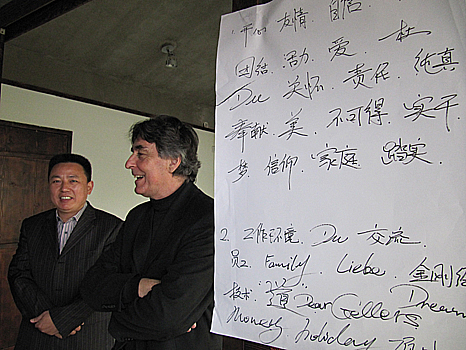 开心 友情 自信
团结. 活力. 爱. 杜
Du 关怀. 责任. 纯真
奉献. 美. 不可得. 实干
梦. 信仰. 家庭. 踏实.
2. 工作环境. Du 交流.
员工. Family. Liebe. 金刚
技术. 道 Dear Gellers Dream
Money holiday